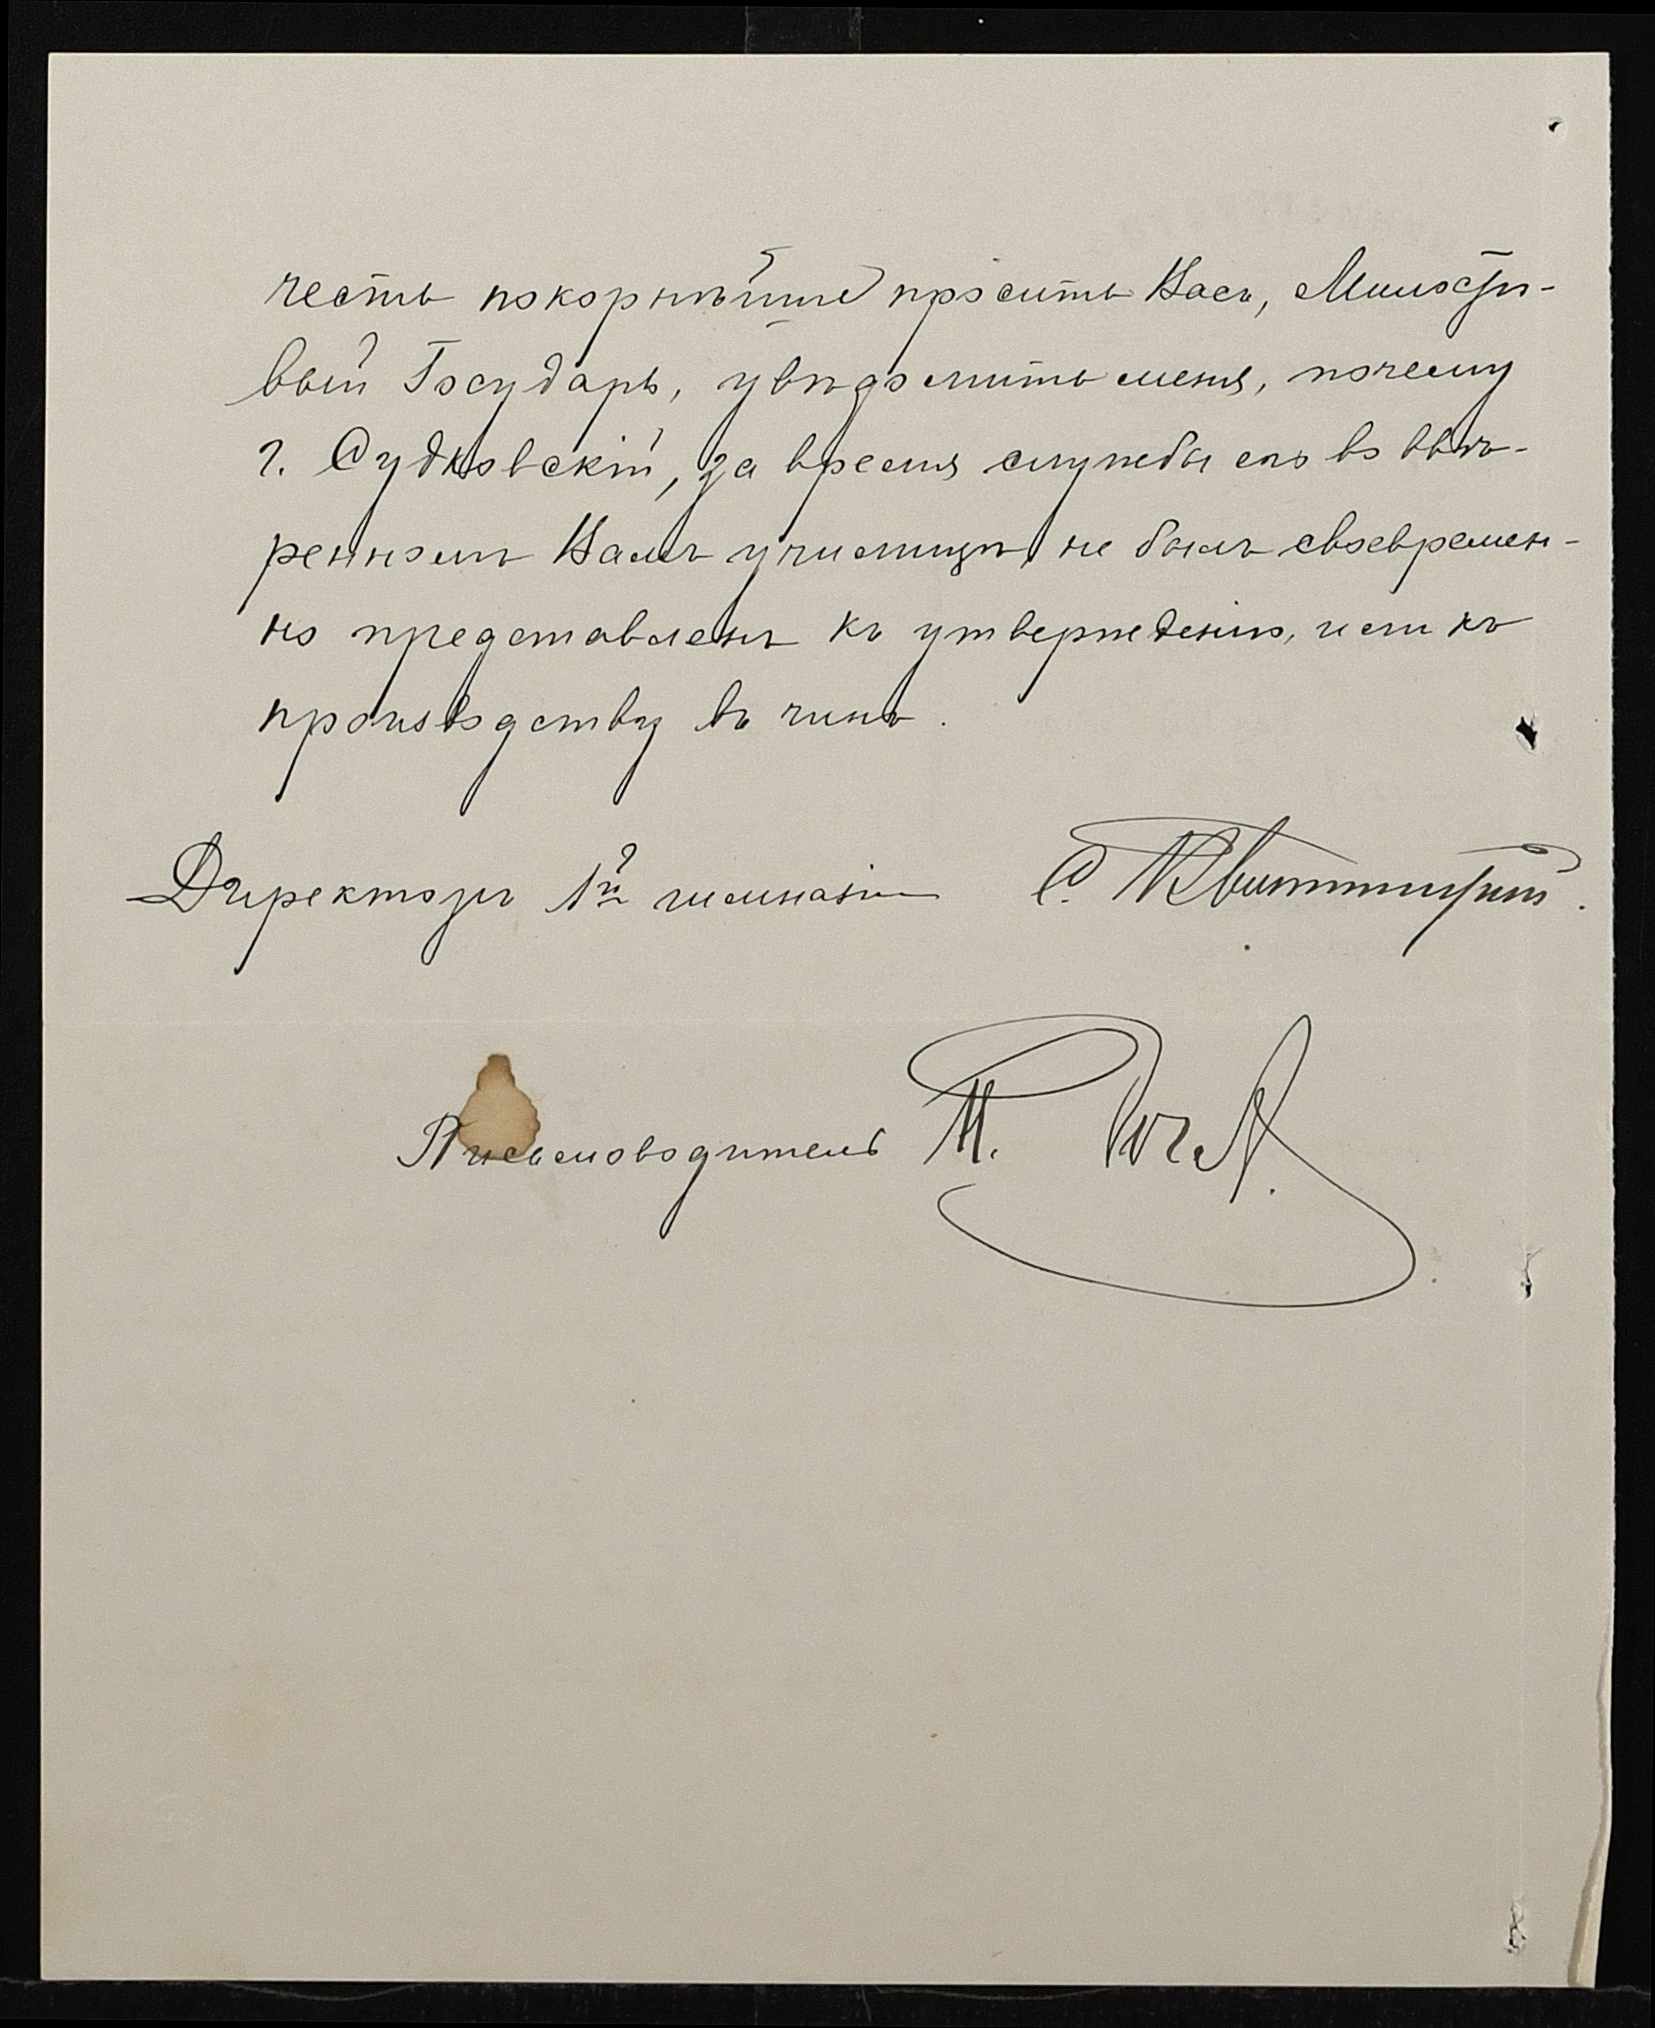 честь покорнѣйше просить Васъ, Милости-
вый Государь, увѣдомить меня, почему
г. Судковскій, за время службы его во ввѣ-
ренномъ Вамъ училищѣ не былъ своевремен-
но представленъ къ утвержденію, или къ
производству въ чинъ.
Директоръ 1й гимназіи С.
Письмоводитель М.